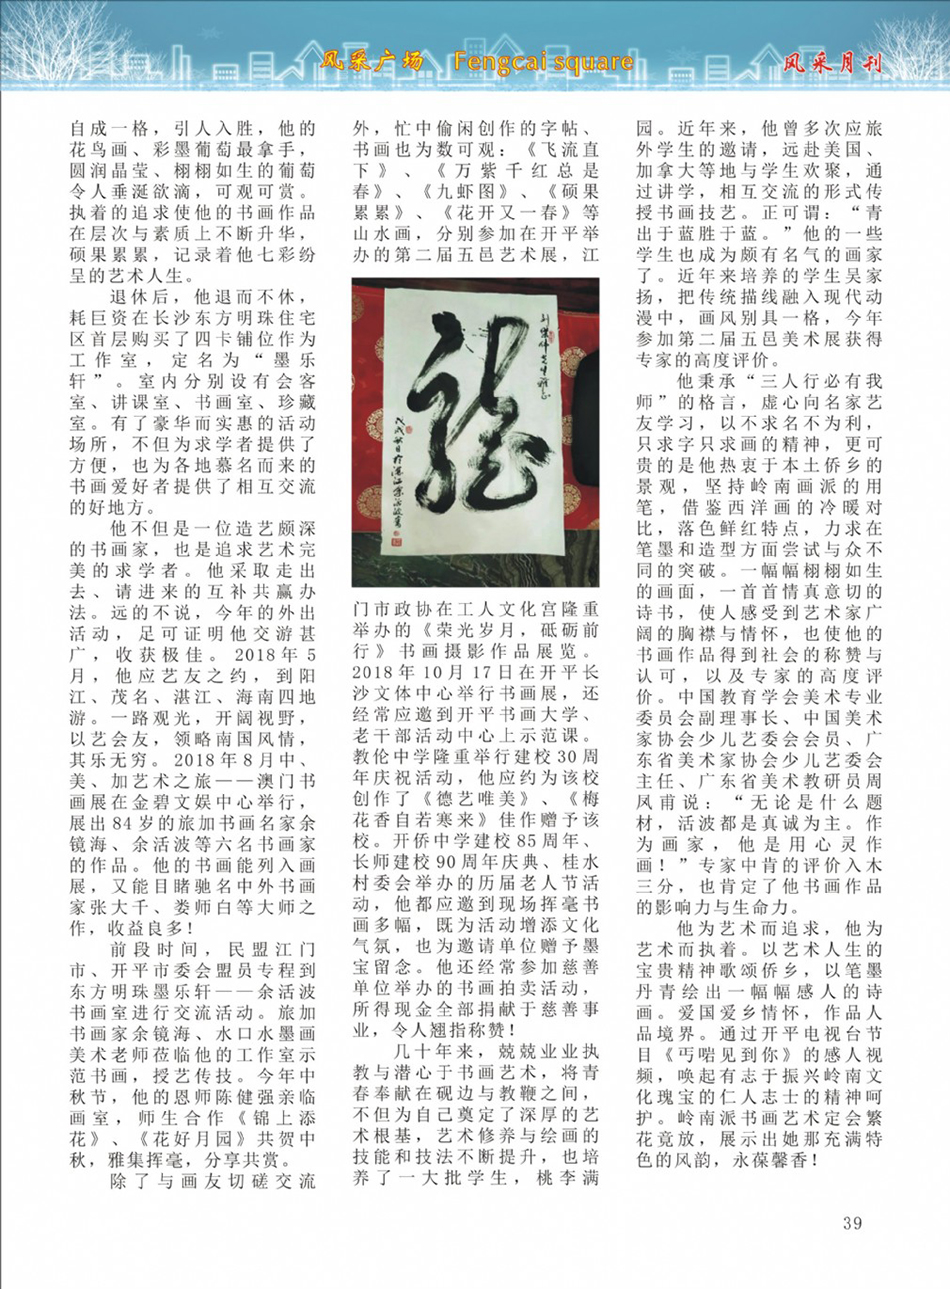 风采广场 Fengcai square
风采月刊
自成一格，引人入胜，他的
花鸟画、彩墨葡萄最拿手，
圆润晶莹、栩栩如生的葡萄
令人垂涎欲滴，可观可赏。
执着的追求使他的书画作品
在层次与素质上不断升华，
硕果累累，记录着他七彩纷
呈的艺术人生。
退休后，他退而不休，
耗巨资在长沙东方明珠住宅
区首层购买了四卡铺位作为
工作室，定名为“墨乐
轩”。室内分别设有会客
室、讲课室、书画室、珍藏
室。有了豪华而实惠的活动
场所，不但为求学者提供了
方便，也为各地慕名而来的
书画爱好者提供了相互交流
的好地方。
他不但是一位造艺颇深
的书画家，也是追求艺术完
美的求学者。他采取走出
去、请进来的互补共赢办
法。远的不说，今年的外出
活动，足可证明他交游甚
广，收获极佳。2018年5
月，他应艺友之约，到阳
江、茂名、湛江、海南四地
游。一路观光，开阔视野，
以艺会友，领略南国风情，
其乐无穷。2018年8月中、
美、加艺术之旅——澳门书
画展在金碧文娱中心举行，
展出84岁的旅加书画名家余
镜海、余活波等六名书画家
的作品。他的书画能列入画
展，又能目睹驰名中外书画
家张大千、娄师白等大师之
作，收益良多！
前段时间，民盟江门
市、开平市委会盟员专程到
东方明珠墨乐轩——余活波
书画室进行交流活动。旅加
书画家余镜海、水口水墨画
美术老师莅临他的工作室示
范书画，授艺传技。今年中
秋节，他的恩师陈健强亲临
画室，师生合作《锦上添
花》、《花好月园》共贺中
秋，雅集挥毫，分享共赏。
除了与画友切磋交流
外，忙中偷闲创作的字帖、
书画也为数可观：《飞流直
下》、《万紫千红总是
春》、《九虾图》、《硕果
累累》、《花开又一春》等
山水画，分别参加在开平举
办的第二届五邑艺术展，江
门市政协在工人文化宫隆重
举办的《荣光岁月，砥砺前
行》书画摄影作品展览。
2018年10月17日在开平长
沙文体中心举行书画展，还
经常应邀到开平书画大学、
老干部活动中心上示范课。
教伦中学隆重举行建校30周
年庆祝活动，他应约为该校
创作了《德艺唯美》、《梅
花香自若寒来》佳作赠予该
校。开侨中学建校85周年、
长师建校90周年庆典、桂水
村委会举办的历届老人节活
动，他都应邀到现场挥毫书
画多幅，既为活动增添文化
气氛，也为邀请单位赠予墨
宝留念。他还经常参加慈善
单位举办的书画拍卖活动，
所得现金全部捐献于慈善事
业，令人翘指称赞！
几十年来，兢兢业业执
教与潜心于书画艺术，将青
春奉献在砚边与教鞭之间，
不但为自己奠定了深厚的艺
术根基，艺术修养与绘画的
技能和技法不断提升，也培
养了一大批学生，桃李满
园。近年来，他曾多次应旅
外学生的邀请，远赴美国、
加拿大等地与学生欢聚，通
过讲学，相互交流的形式传
授书画技艺。正可谓：“青
出于蓝胜于蓝。”他的一些
学生也成为颇有名气的画家
了。近年来培养的学生吴家
扬，把传统描线融入现代动
漫中，画风别具一格，今年
参加第二届五邑美术展获得
专家的高度评价。
他秉承“三人行必有我
师”的格言，虚心向名家艺
友学习，以不求名不为利，
只求字只求画的精神，更可
贵的是他热衷于本土侨乡的
景观，坚持岭南画派的用
笔，借鉴西洋画的冷暖对
比，落色鲜红特点，力求在
笔墨和造型方面尝试与众不
同的突破。一幅幅栩栩如生
的画面，一首首情真意切的
诗书，使人感受到艺术家广
阔的胸襟与情怀，也使他的
书画作品得到社会的称赞与
认可，以及专家的高度评
价。中国教育学会美术专业
委员会副理事长、中国美术
家协会少儿艺委会会员、广
东省美术家协会少儿艺委会
主任、广东省美术教研员周
凤甫说：“无论是什么题
材，活波都是真诚为主。作
为画家，他是用心灵作
画！”专家中肯的评价入木
三分，也肯定了他书画作品
的影响力与生命力。
他为艺术而追求，他为
艺术而执着。以艺术人生的
宝贵精神歌颂侨乡，以笔墨
丹青绘出一幅幅感人的诗
画。爱国爱乡情怀，作品人
品境界。通过开平电视台节
目《丐啱见到你》的感人视
频，唤起有志于振兴岭南文
化瑰宝的仁人志士的精神呵
护。岭南派书画艺术定会繁
花竞放，展示出她那充满特
色的风韵，永葆馨香！
39